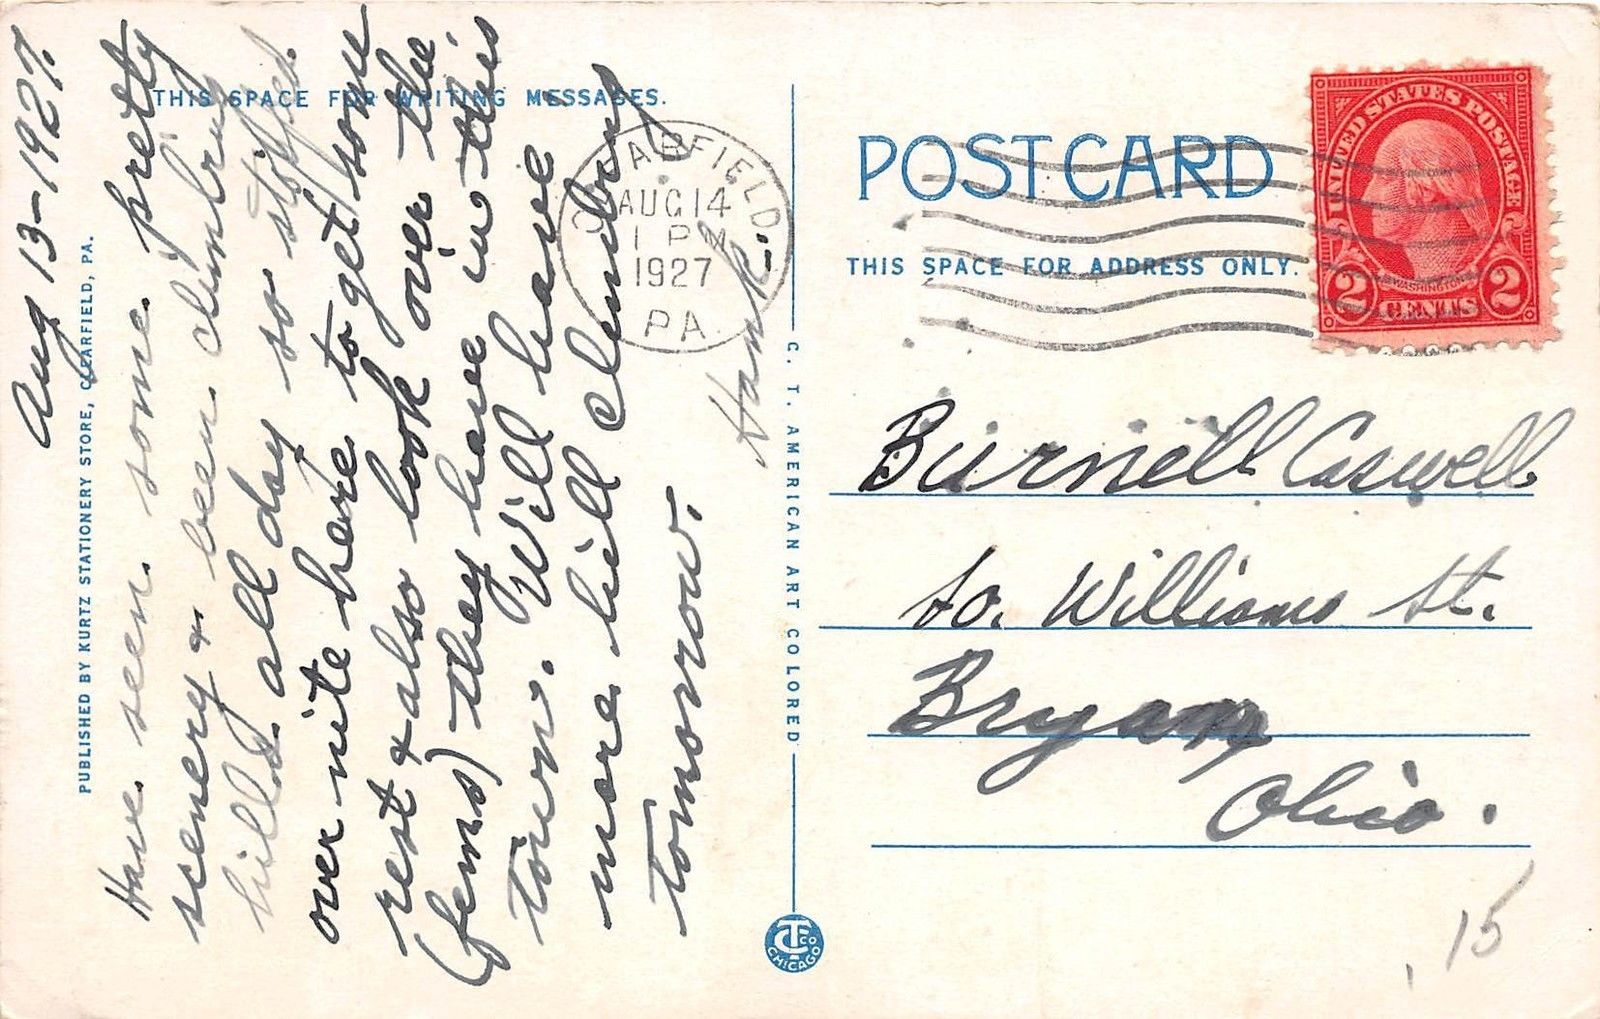 Aug 13-1927.
Have seen some pretty
scenery & been climbing
hills all day so stopped
over nite here to get some
rest & also look over the
(fems) they have in this
town. Will have
more hill climbing
tomorrow.
Hank.
THIS SPACE FOR WRITING MESSAGES.
PUBLISHED BY KURTZ STATIONERY STORE, CLEARFIELD, PA.
CLEARFIELD.
AUG 14
1 PM
1927
PA.
C. T. AMERICAN ART COLORED
CT CO
CHICAGO
POST CARD
THIS SPACE FOR ADDRESS ONLY.
UNITED STATES POSTAGE
WASHINGTON
2 CENTS 2
Burnell Caswell
So. Williams St.
Bryan
Ohio.
.15